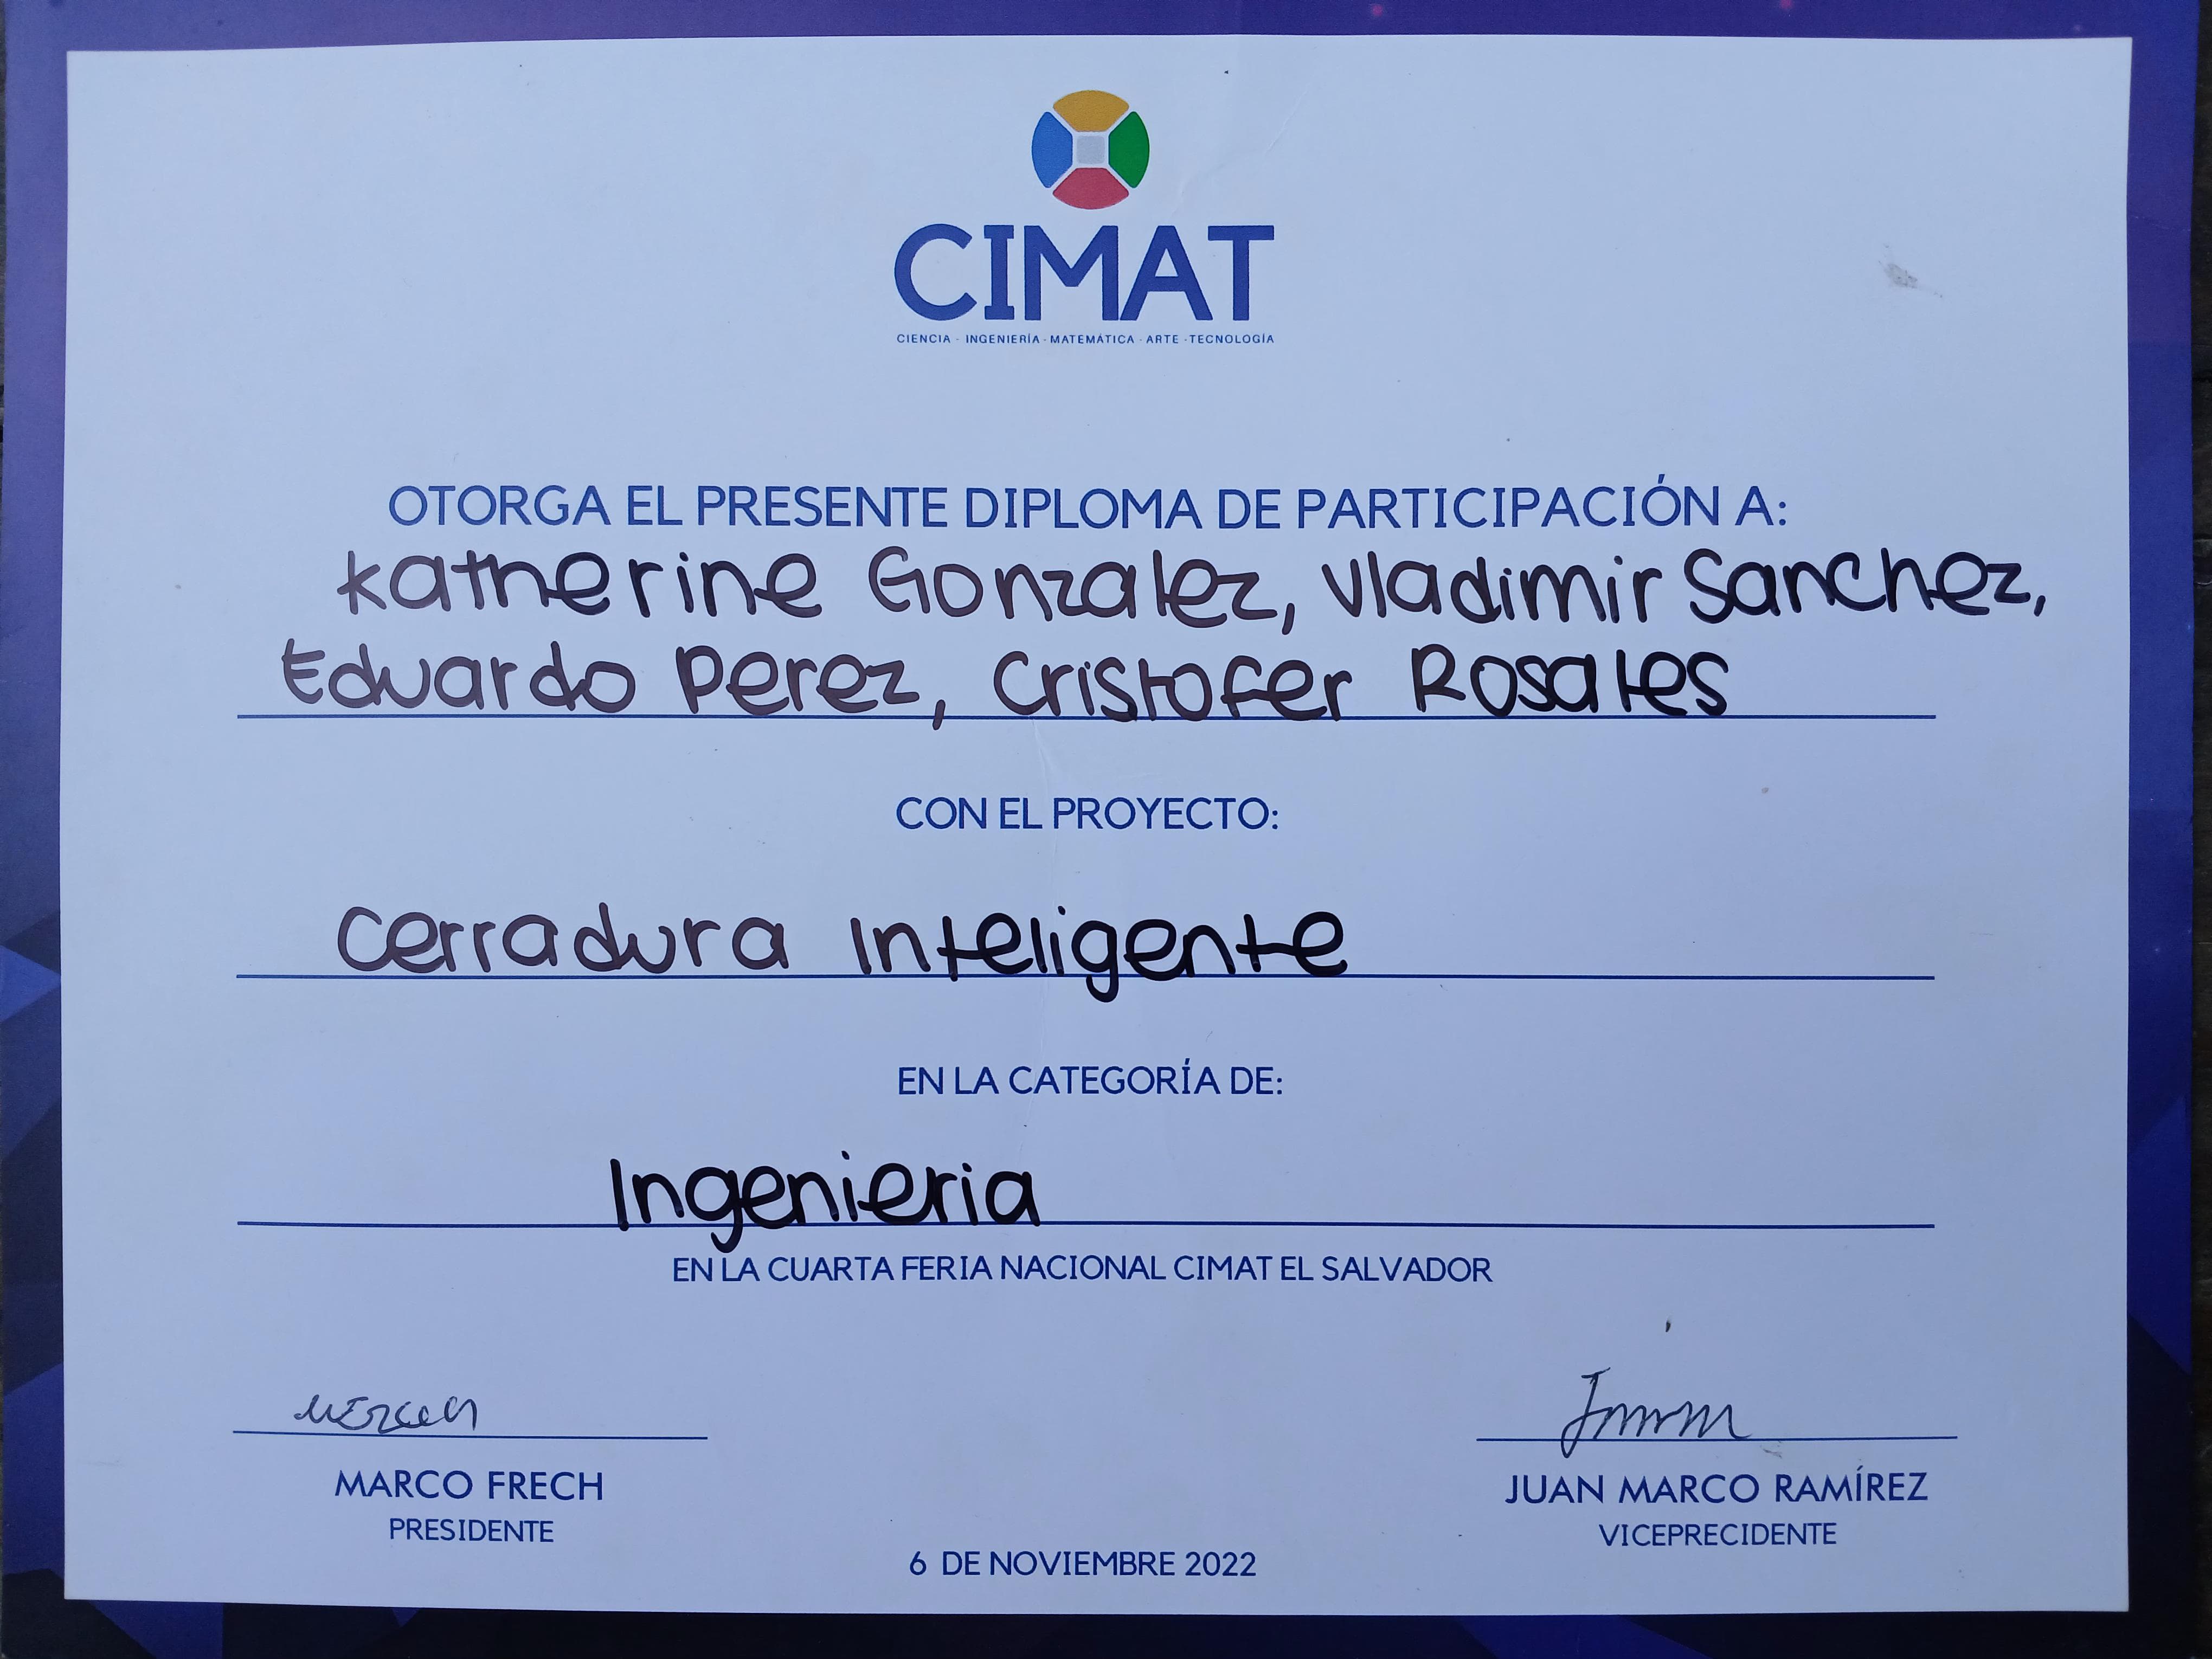 CIMAT
CIENCIA · INGENIERÍA · MATEMÁTICA · ARTE · TECNOLOGÍA
OTORGA EL PRESENTE DIPLOMA DE PARTICIPACIÓN A:
Katherine Gonzalez, Vladimir Sanchez,
Eduardo Perez, Cristofer Rosales
CON EL PROYECTO:
Cerradura Inteligente
EN LA CATEGORÍA DE:
Ingenieria
EN LA CUARTA FERIA NACIONAL CIMAT EL SALVADOR
MARCO FRECH
PRESIDENTE
JUAN MARCO RAMÍREZ
VICEPRECIDENTE
6 DE NOVIEMBRE 2022